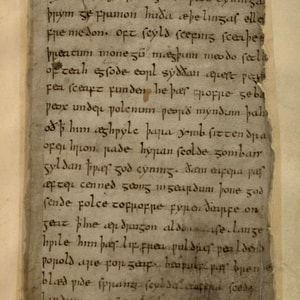 þrym ge frunon huða æþelingas elle
fre medon. oft scyld scefing sceaþe
þreatum monegū mægþum meodo setla
of teah egsode eorl syððan ærest ƿea
fea sceaft funden he þæs frofre geba
ƿeox under ƿolcnum ƿeorð myndum þah
oð ꝥ him æghƿylc þara ymb sittendra
ofer hron rade hyran scolde gomban
gyldan ꝥ ƿæs god cyning. ðæm eafera ƿæs
æfter cenned geong in geardum þone god
sende folce tofrofre fyren ðearfe on
geat ꝥ hie ær drugon aldor ase. lange
hƿile him þæs lif frea ƿuldres ƿealdend
ƿorold are for geaf. beoƿulf ƿæs breme
blæd ƿide sprang scyldes eafera scede